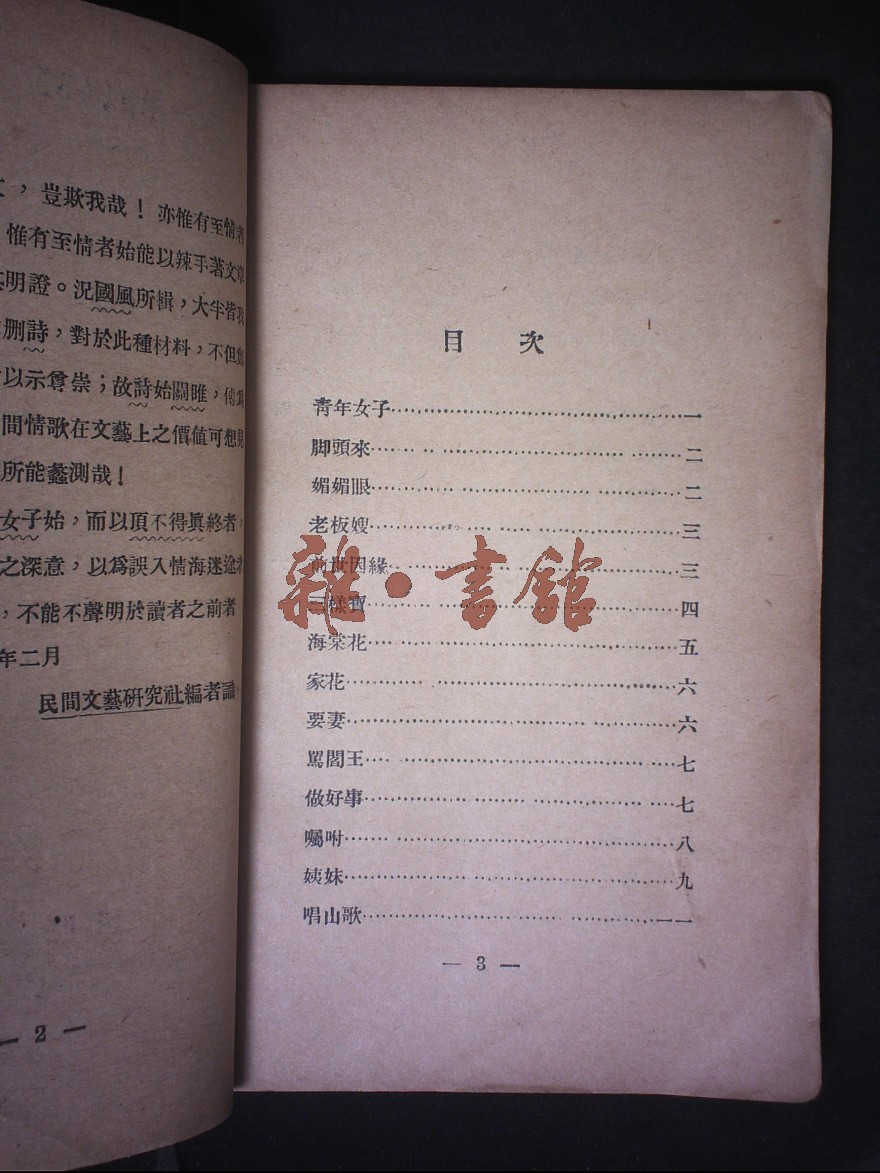 ，豈欺我哉！亦惟有至情者
惟有至情者始能以辣手著文章
明證。況國風所輯，大半皆
删詩，對於此種材料，不但
以示尊崇；故詩始關雎，傳爲
間情歌在文藝上之價值可想見
所能蠡測哉！
女子始，而以頂不得眞終者，
之深意，以爲誤入情海迷途者
，不能不聲明於讀者之前者
年二月
民間文藝研究社編者識。
— 2 —
目 次
靑年女子……一
脚頭來……二
媚媚眼……二
老板嫂……三
前世因緣……三
三樣寶……四
海棠花……五
家花……六
要妻……六
駡閻王……七
做好事……七
囑咐……八
姨妹……九
唱山歌……一一
— 3 —
雜·書館